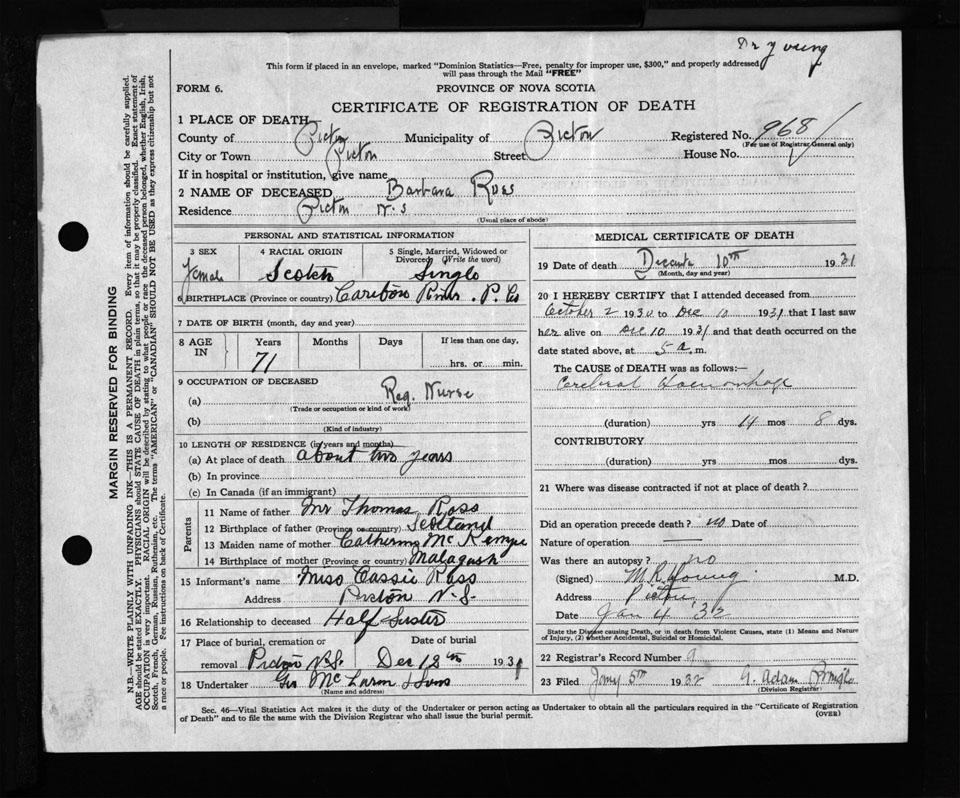 Dr Young
This form if placed in an envelope, marked "Dominion Statistics—Free, penalty for improper use, $300," and properly addressed
will pass through the Mail "FREE"
FORM 6.
PROVINCE OF NOVA SCOTIA
CERTIFICATE OF REGISTRATION OF DEATH
1 PLACE OF DEATH
County of Pictou Municipality of Pictou Registered No. 968
(For use of Registrar General only)
City or Town Pictou Street House No.
If in hospital or institution, give name
2 NAME OF DECEASED Barbara Ross
Residence Pictou N.S
(Usual place of abode)
PERSONAL AND STATISTICAL INFORMATION
3 SEX 4 RACIAL ORIGIN 5 Single, Married, Widowed or
Divorced (Write the word)
Female Scotch Single
6 BIRTHPLACE (Province or country) Caribou River. P. Co
7 DATE OF BIRTH (month, day and year)
8 AGE IN Years Months Days If less than one day,
71 hrs. or min.
9 OCCUPATION OF DECEASED
(a) Reg. Nurse
(Trade or occupation or kind of work)
(b)
(Kind of industry)
10 LENGTH OF RESIDENCE (in years and months)
(a) At place of death about two years
(b) In province
(c) In Canada (if an immigrant)
Parents
11 Name of father Mr Thomas Ross
12 Birthplace of father (Province or country) Scotland
13 Maiden name of mother Catherine
14 Birthplace of mother (Province or country) Malagash
15 Informant's name Miss Cassie Ross
Address Pictou N.S.
16 Relationship to deceased Half Sister
17 Place of burial, cremation or Date of burial
removal Pictou N.S. Dec 12th 1931
18 Undertaker Geo McLaren & Sons
(Name and address)
MEDICAL CERTIFICATE OF DEATH
19 Date of death 10th 1931
(Month, day and year)
20 I HEREBY CERTIFY that I attended deceased from
October 2 1930 to Dec 10 1931 that I last saw
her alive on Dec 10 1931 and that death occurred on
date stated above, at 5 a. m.
The CAUSE of DEATH was as follows:—
Cerebral Haemorrhage
(duration) yrs 14 mos 8 dys.
CONTRIBUTORY
(duration) yrs. mos. dys.
21 Where was disease contracted if not at place of death?
Did an operation precede death? no Date of
Nature of operation —
Was there an autopsy? no
(Signed) M.R. Young M.D.
Address Pictou
Date Jan 4 '32
State the Disease causing Death, or in death from Violent Causes, state (1) Means and Nature
of Injury, (2) whether Accidental, Suicidal or Homicidal.
22 Registrar's Record Number 9
23 Filed Jany 5th 1932 G. Adam
(Division Registrar)
Sec. 46—Vital Statistics Act makes it the duty of the Undertaker or person acting as Undertaker to obtain all the particulars required in the "Certificate of Registration
of Death" and to file the same with the Division Registrar who shall issue the burial permit.
(OVER)
MARGIN RESERVED FOR BINDING
N.B.—WRITE PLAINLY WITH UNFADING INK—THIS IS A PERMANENT RECORD. Every item of information should be carefully supplied.
AGE should be stated EXACTLY. PHYSICIANS should STATE CAUSE OF DEATH in plain terms, so that it may be properly classified. Exact statement of
OCCUPATION is very important. RACIAL ORIGIN will be described by stating to what people or race the deceased person belonged, whether English, Irish,
Scotch, French, German, Russian, Ruthenian, etc. The terms "AMERICAN" or "CANADIAN" SHOULD NOT BE USED as they express citizenship but not
a race or people. Fee instructions on back of Certificate.